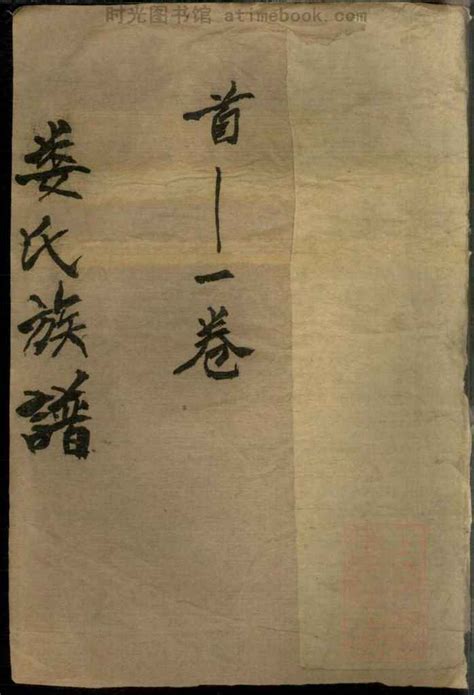 时光图书馆 atimebook.com
首—一卷
娄氏族譜